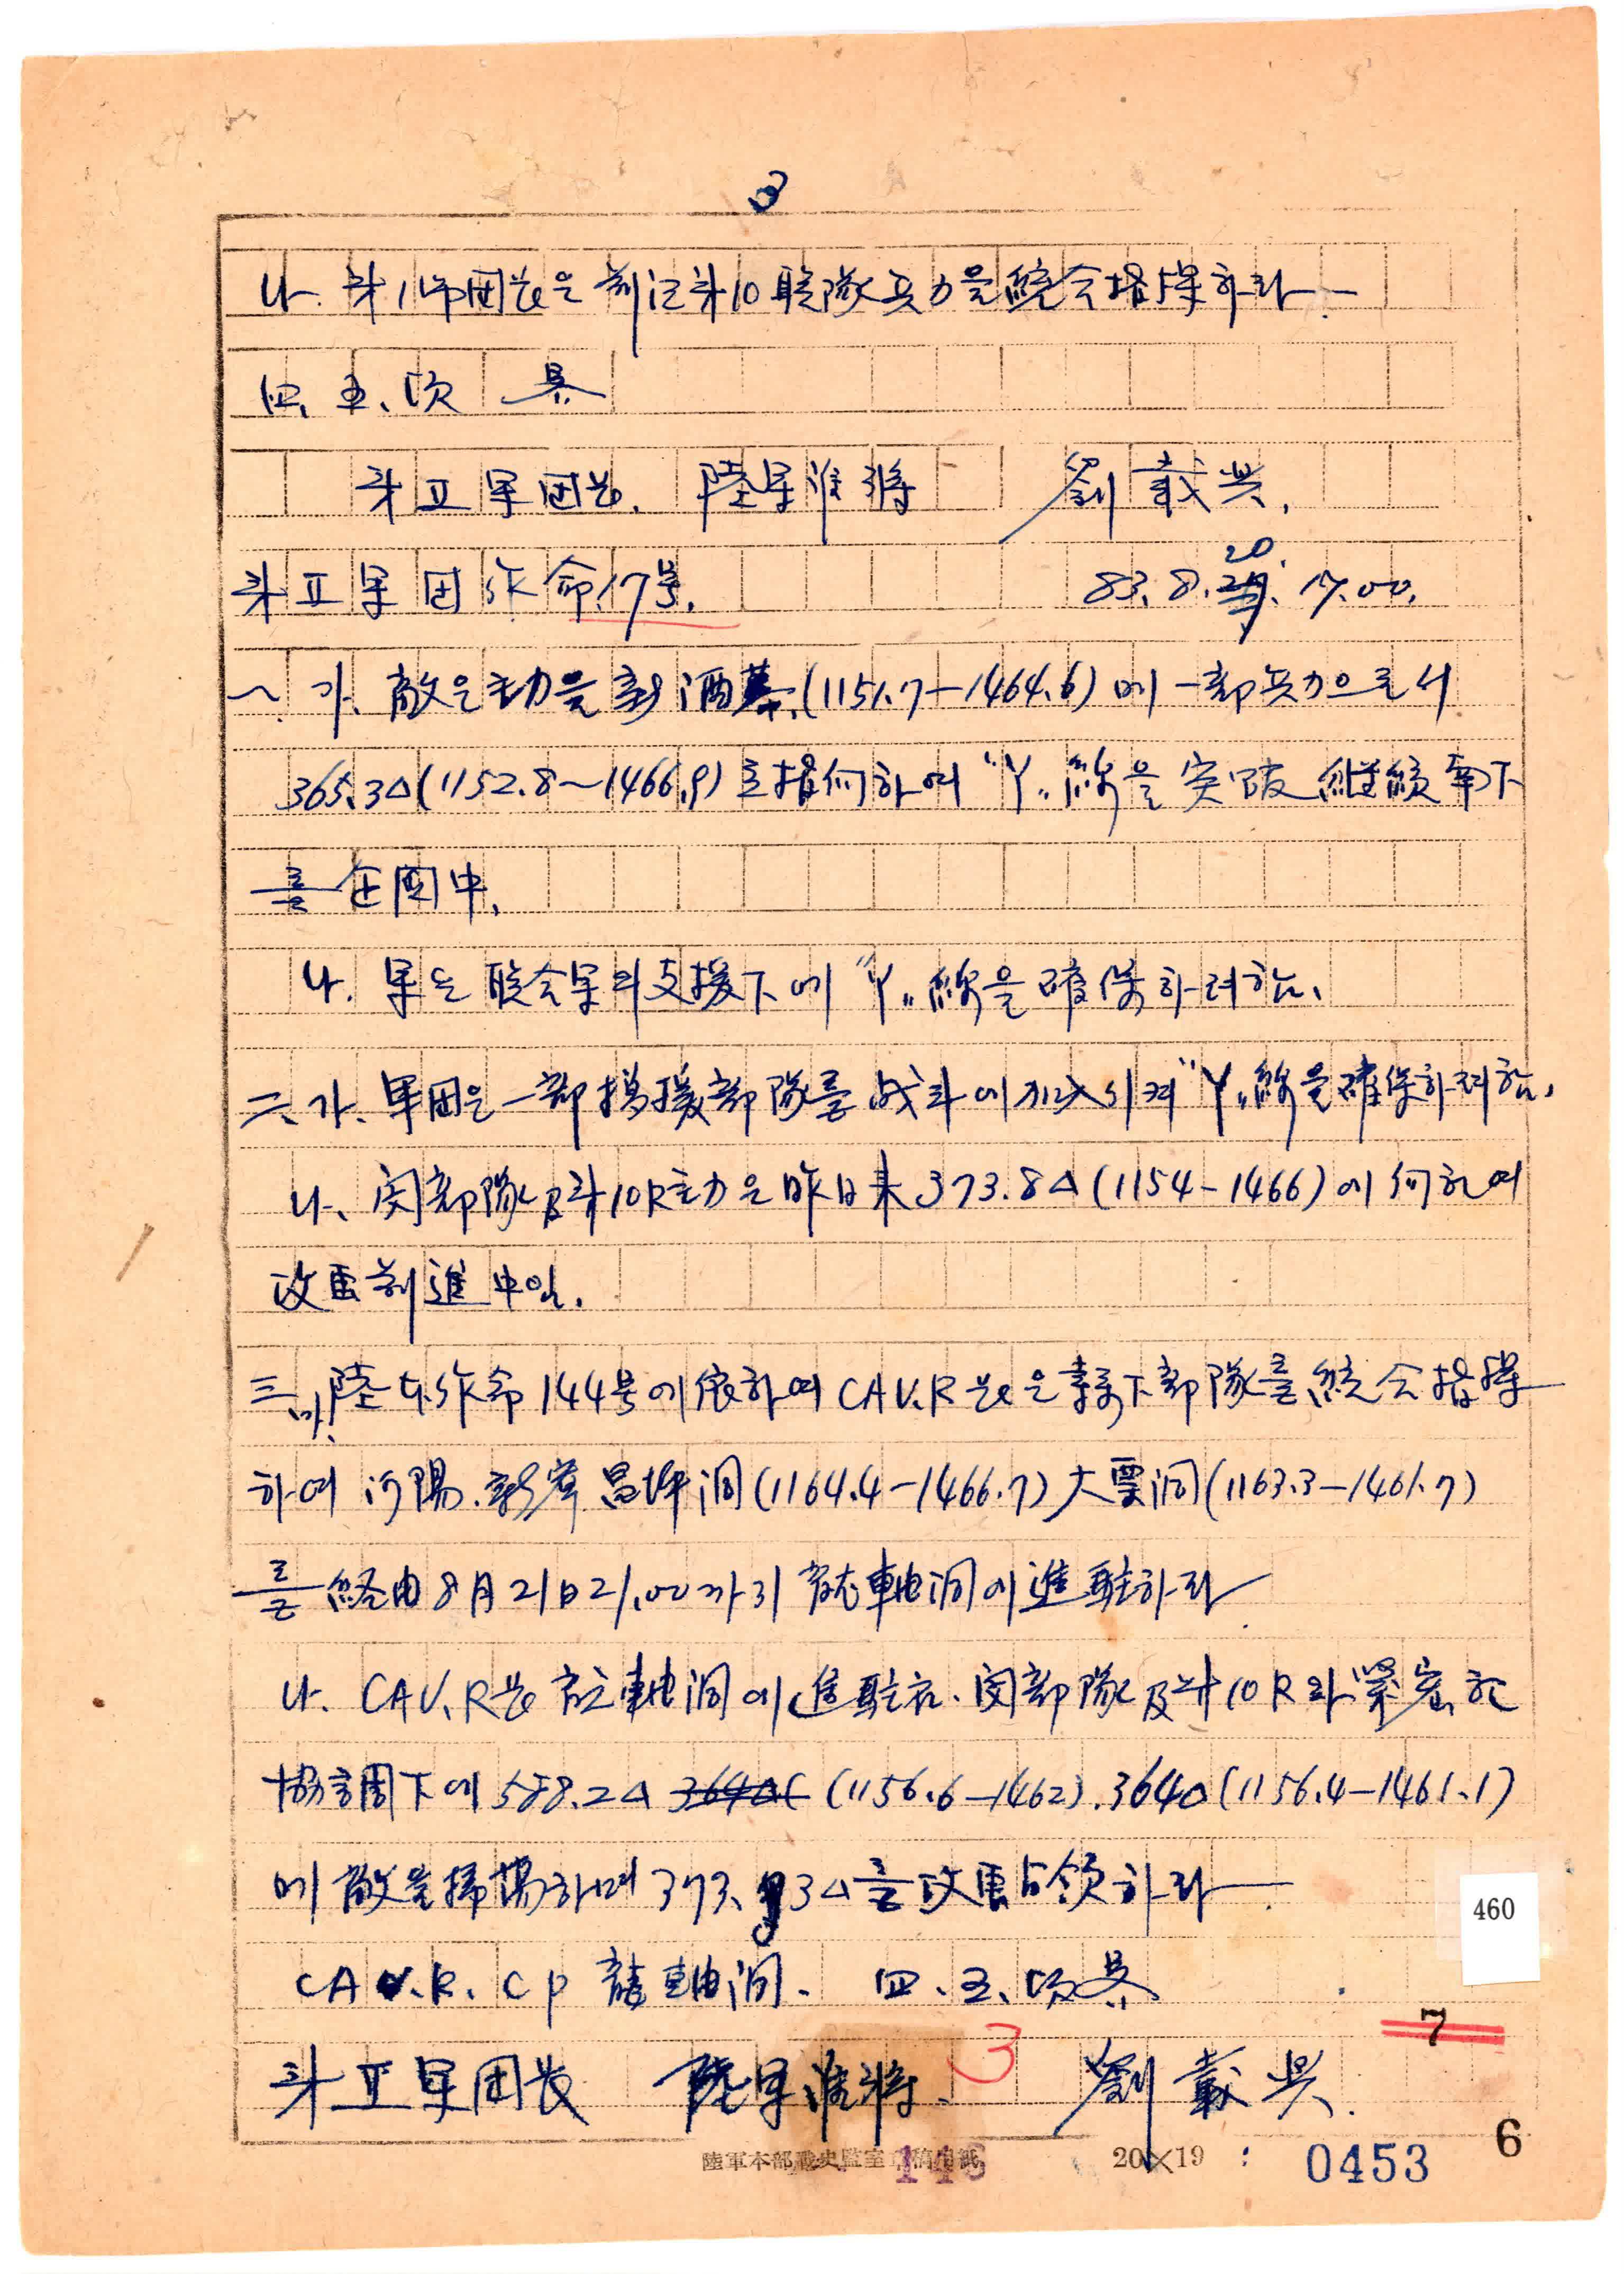 3
나. 第1師團長은 前記第10联隊兵力을 統合指揮하라
四, 五, 項 畧
第Ⅱ軍団長. 陸軍准将 劉載興.
20
第Ⅱ軍団作命17号. 83. 8. 17.00.
一. 가. 敵은 主力을 新酒幕(1151.7-1464.6)에 一部兵力으로서
365.3△(1152.8~1466.9)로 指向하여 "Y"線을 突破 継続 南下
를 企図中.
나. 軍은 联合軍의 支援下에 "Y"線을 確保하려함.
二. 가. 軍団은 一部 增援部隊를 战斗에 加入시켜 "Y"線을 確保하려함.
나. 閔部隊 及 第10R 主力은 昨日来 373.8△(1154-1466)에 向하여
攻擊前進中임.
三. 가. 陸本作命 144号에 依하여 CAV.R 長은 隷下部隊를 統合指揮
하여 河陽. 新寧 昌坪洞(1164.4-1466.7) 大栗洞(1163.3-1461.7)
를 経由 8月21日 21.00까지 龍軸洞에 進駐하라
나. CAV.R長 龍軸洞에 進駐后. 閔部隊 及 第10R와 緊密한
協調下에 588.2△ 364△( (1156.6-1462). 364△(1156.4-1461.1)
에 敵을 掃蕩하며 373. 3△를 攻擊占領하라
CAV.R. CP 龍軸洞. 四. 五. 項畧
第Ⅱ軍団長 陸軍准将. 劉載興.
3
460
7
6
陸軍本部戰史監室原稿用紙 20×19
113
0453